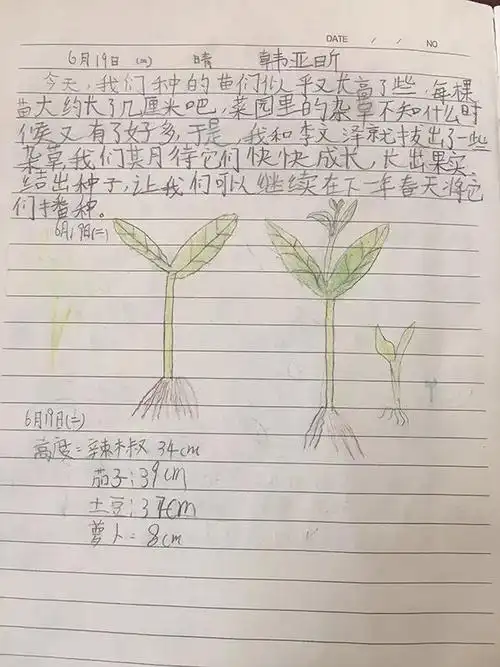 DATE / / NO
6月19日 (二) 晴 韩亚昕
今天,我们种的苗们似乎又大高了些,每棵
苗大约长了几厘米吧,菜园里的杂草不知什么时
候又有了好多,于是,我和李文泽就拔出了一些
杂草,我们其月待它们快快成长,长出果实,
结出种子,让我们可以继续在下一年春天将它
们播种。
6月19日(二)
6月19日(二)
高度:辣椒 34cm
茄子:39cm
土豆:37cm
萝卜:8cm